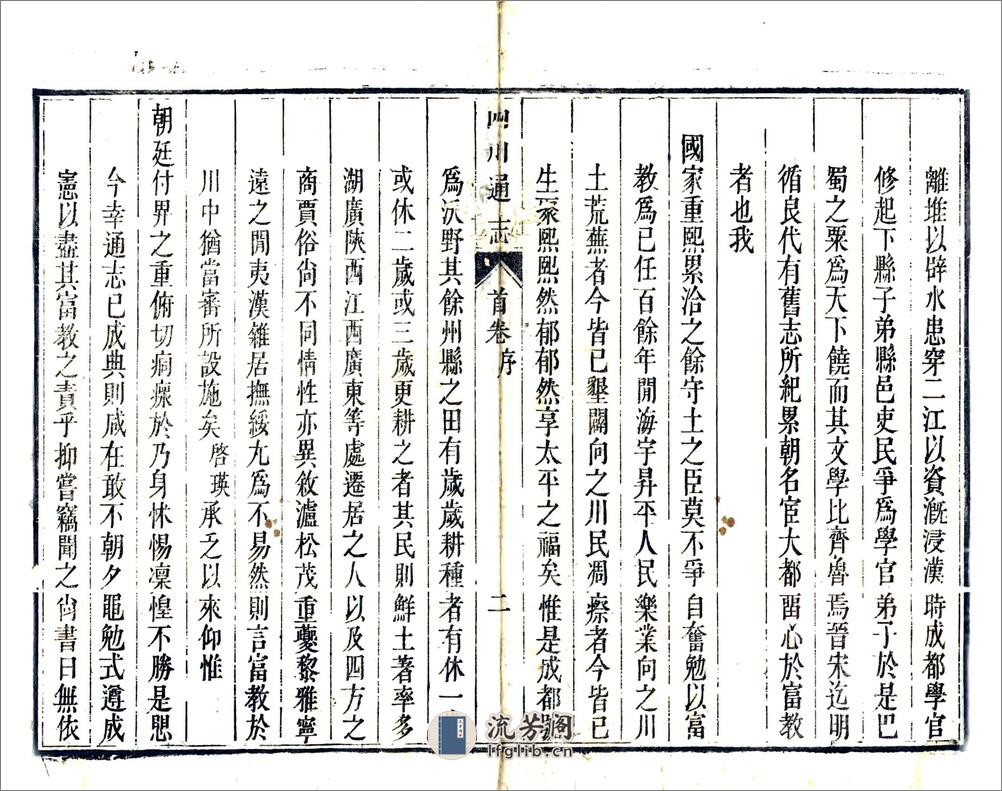 離堆以辟水患穿二江以資漑浸漢時成都學官
修起下縣子弟縣邑吏民爭爲學官弟子於是巴
蜀之粟爲天下饒而其文學比齊魯焉晉宋迄明
循良代有舊志所紀累朝名宦大都畱心於富教
者也我
國家重熙累洽之餘守土之臣莫不爭自奮勉以富
教爲己任百餘年閒海宇昇平人民樂業向之川
土荒蕪者今皆已墾闢向之川民凋瘵者今皆已
生聚熙熙然郁郁然享太平之福矣惟是成都
四川通志 首卷 序 二
爲沃野其餘州縣之田有歲歲耕種者有休一
或休二歲或三歲更耕之者其民則鮮土著率多
湖廣陝西江西廣東等處遷居之人以及四方之
商賈俗尙不同情性亦異敘瀘松茂重夔黎雅寧
遠之閒夷漢雜居撫綏尤爲不易然則言富教於
川中猶當審所設施矣啓瑛承乏以來仰惟
朝廷付畀之重俯切痌瘝於乃身怵惕凜惶不勝是思
今幸通志已成典則咸在敢不朝夕黽勉式遵成
憲以盡其富教之責乎抑嘗竊聞之尙書曰無依
流芳閣
lfglib.cn